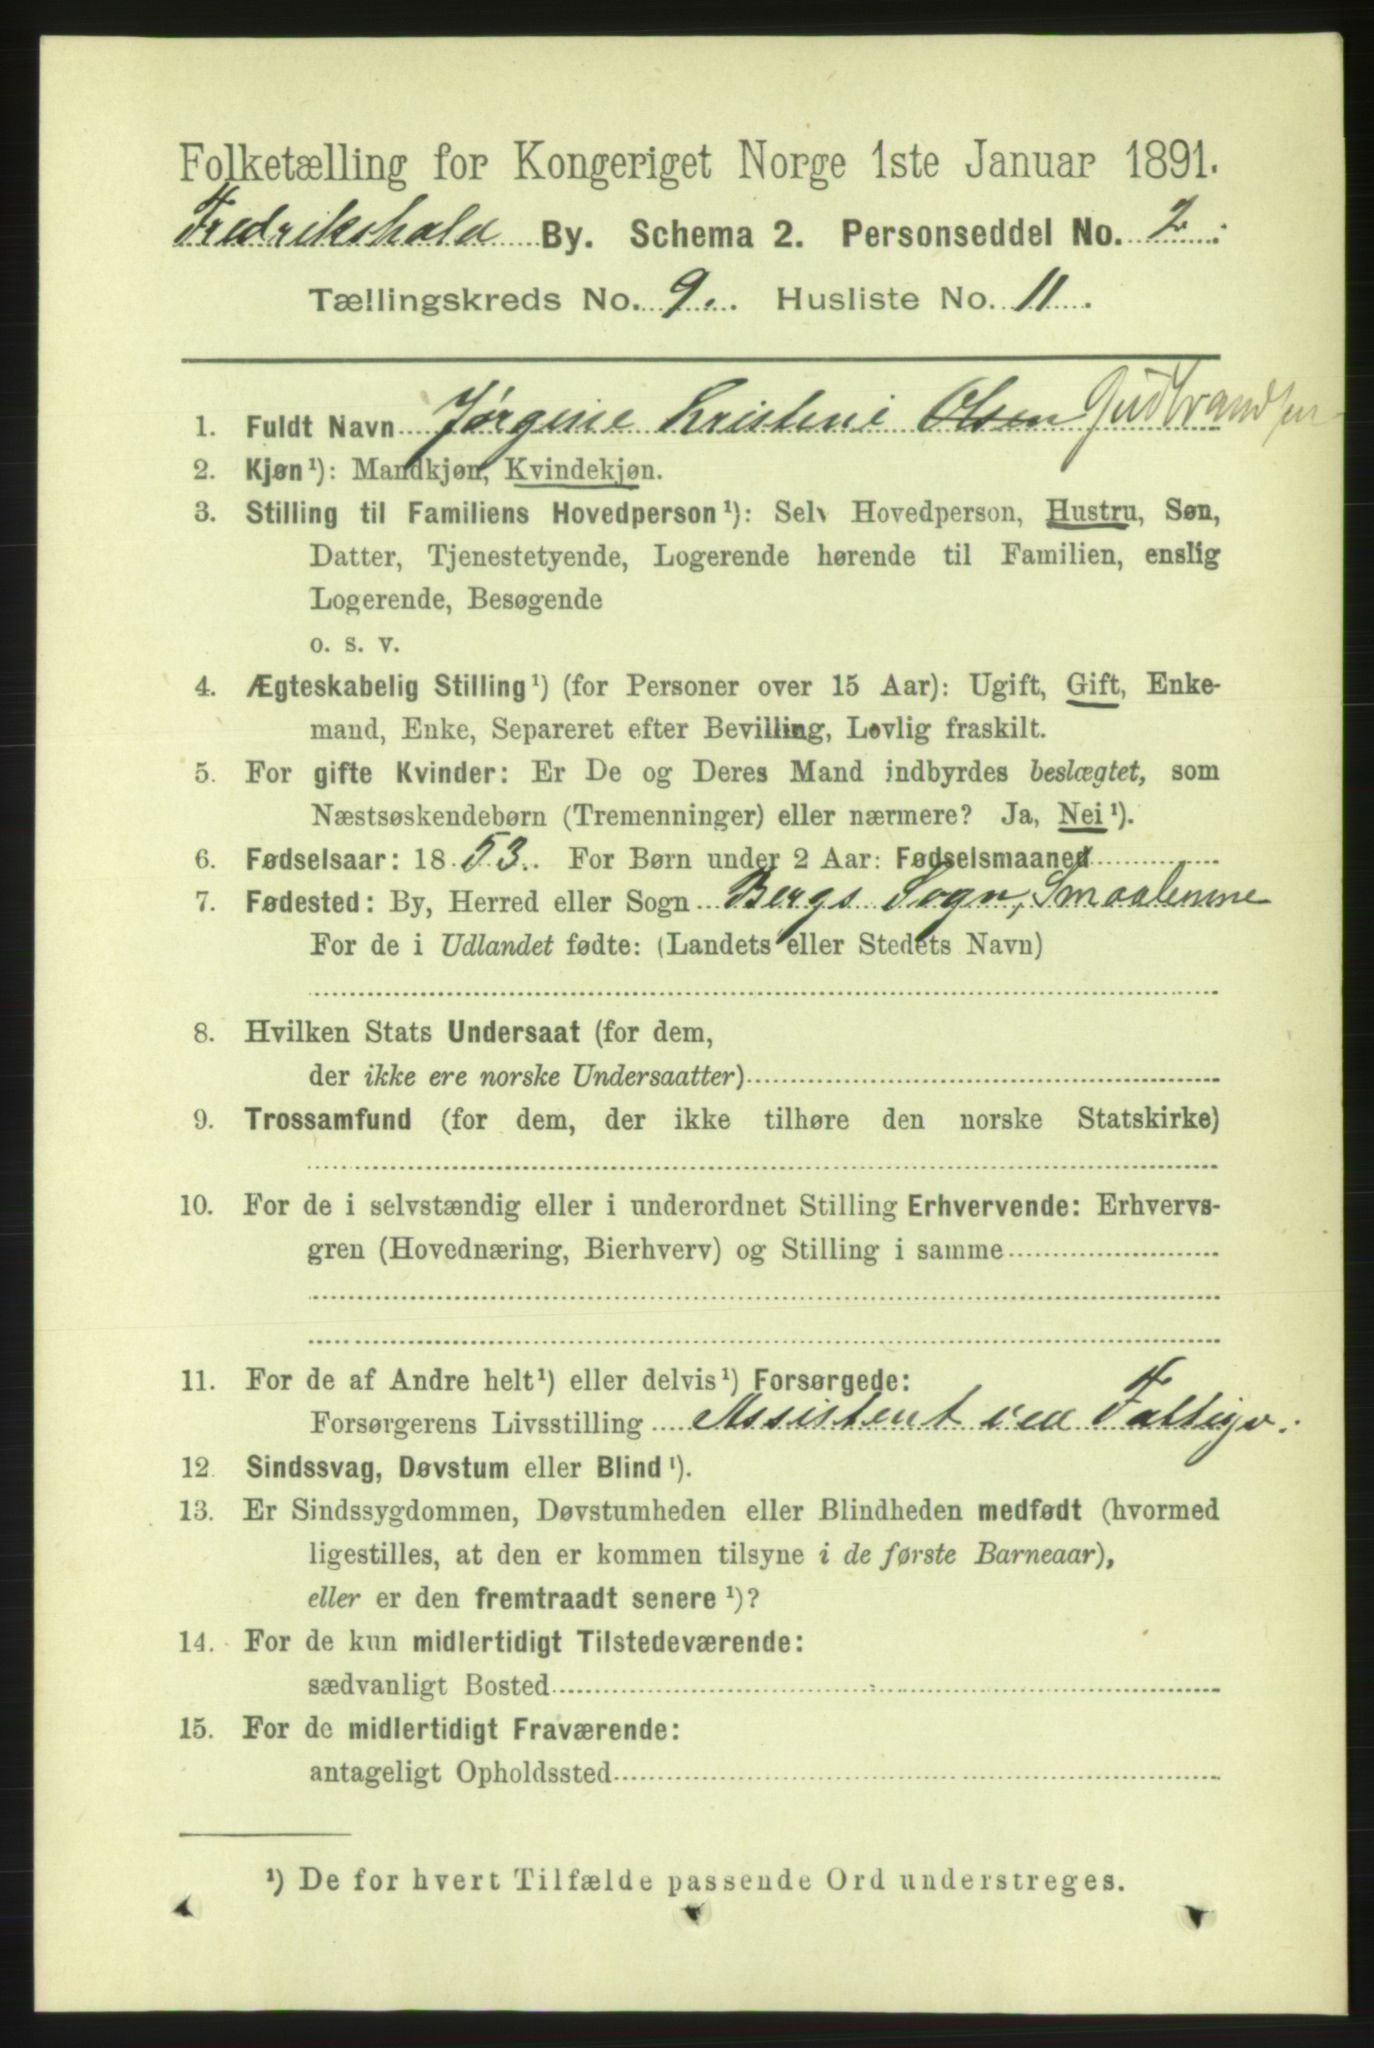 Folketælling for Kongeriget Norge 1ste Januar 1891.
Fredrikshald By. Schema 2. Personseddel No. 2.
Tællingskreds No. 9. Husliste No. 11.
1. Fuldt Navn Jørgine Kristine Olsen Gudbrandsen
2. Kjøn¹): Mandkjøn, Kvindekjøn.
3. Stilling til Familiens Hovedperson¹): Selv Hovedperson, Hustru, Søn,
Datter, Tjenestetyende, Logerende hørende til Familien, enslig
Logerende, Besøgende
o. s. v.
4. Ægteskabelig Stilling¹) (for Personer over 15 Aar): Ugift, Gift, Enke-
mand, Enke, Separeret efter Bevilling, Lovlig fraskilt.
5. For gifte Kvinder: Er De og Deres Mand indbyrdes beslægtet, som
Næstsøskendebørn (Tremenninger) eller nærmere? Ja, Nei¹).
6. Fødselsaar: 1853. For Børn under 2 Aar: Fødselsmaaned
7. Fødested: By, Herred eller Sogn Bergs Sogn, Smaalenene
For de i Udlandet fødte: (Landets eller Stedets Navn)
8. Hvilken Stats Undersaat (for dem,
der ikke ere norske Undersaatter)
9. Trossamfund (for dem, der ikke tilhøre den norske Statskirke)
10. For de i selvstændig eller i underordnet Stilling Erhvervende: Erhvervs-
gren (Hovednæring, Bierhverv) og Stilling i samme
11. For de af Andre helt¹) eller delvis¹) Forsørgede:
Forsørgerens Livsstilling Assistent ved Fattigv.
12. Sindssvag, Døvstum eller Blind¹).
13. Er Sindssygdommen, Døvstumheden eller Blindheden medfødt (hvormed
ligestilles, at den er kommen tilsyne i de første Barneaar),
eller er den fremtraadt senere¹)?
14. For de kun midlertidigt Tilstedeværende:
sædvanligt Bosted
15. For de midlertidigt Fraværende:
antageligt Opholdssted
¹) De for hvert Tilfælde passende Ord understreges.